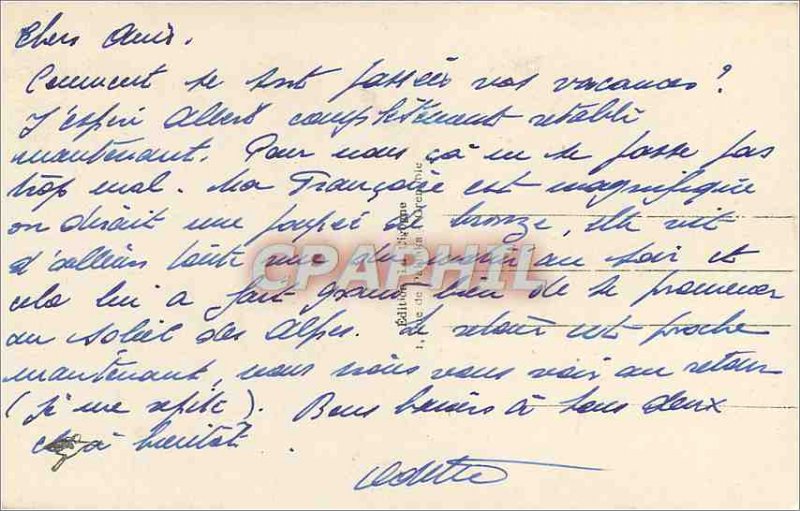 Chers Amis.
Comment se sont passées vos vacances?
J'espère Albert complètement rétabli
maintenant. Pour nous ça ne se passe pas
trop mal. La Françoise est magnifique
on dirait une poupée de bronze, elle vit
d'ailleurs toute nue du matin au soir et
cela lui a fait grand bien de se promener
au soleil des Alpes. Le retour est proche
maintenant, nous irons vous voir au retour
(je me répète). Bons baisers à tous deux
et à bientôt.
Odette
CPARHIL
Édition
1, rue de Grenoble